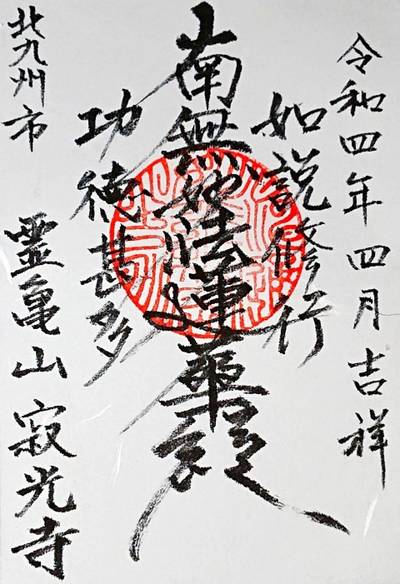 令和四年四月吉祥
如説修行
南無妙法蓮華経
功徳甚多
北九州市
霊亀山 寂光寺